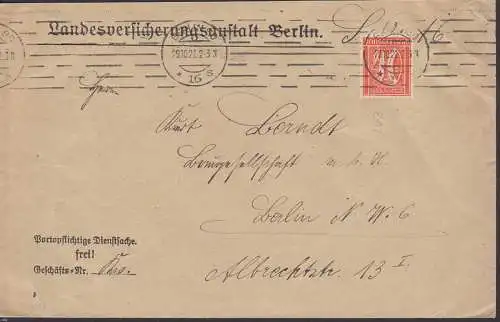 Landesversicherungsanstalt Berlin.
BERLIN
29.10.21.2-3 N
* 16 s
Herrn
Kurt Berndt
Baugesellschaft m. b. H.
Berlin N. W. 6
Albrechtstr. 13 I.
Portopflichtige Dienstsache.
frei!
Geschäfts-Nr.